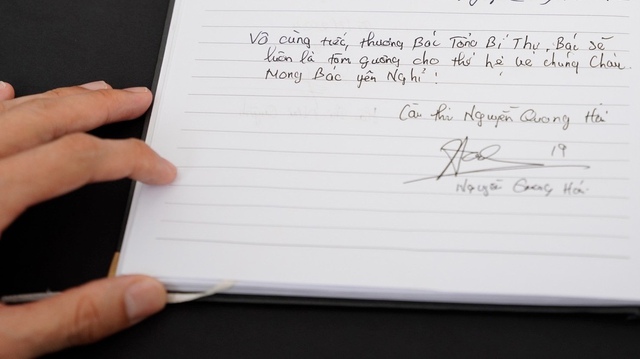 Vô cùng tiếc, thương Bác Tổng Bí Thư, Bác sẽ
luôn là tấm gương cho thế hệ về chúng Cháu.
Mong Bác yên Nghỉ!
Cầu thủ Nguyễn Quang Hải
19
Nguyễn Quang Hải